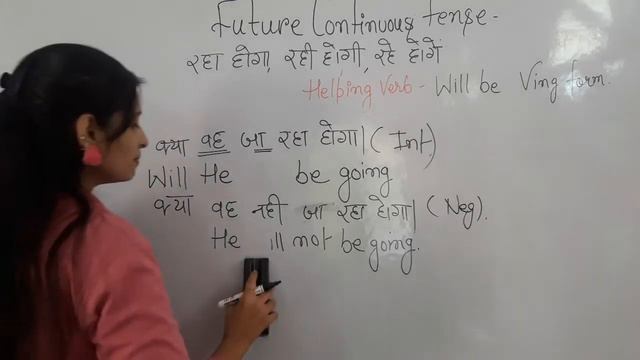 Future Continuous tense -
रहा होगा, रही होगी, रहे होंगे
Helping Verb - Will be Ving form.
क्या वह जा रहा होगा। (Int.)
Will He be going
क्या वह नही जा रहा होगा। (Neg).
He ill not be going.